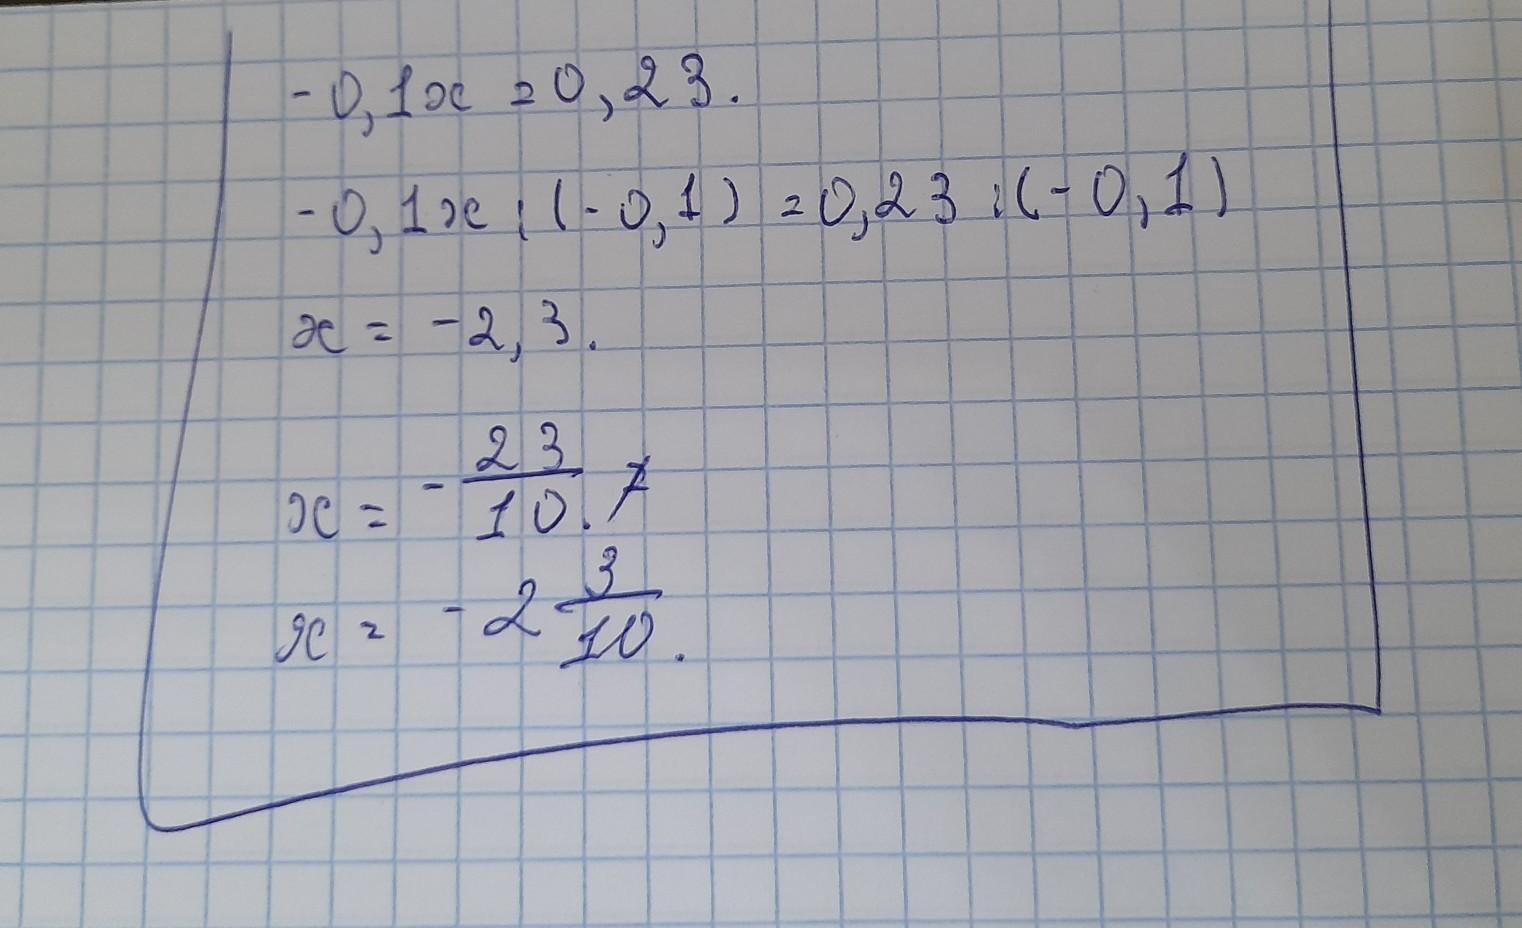 -0,1x = 0,23.
-0,1x : (-0,1) = 0,23 : (-0,1)
x = -2,3.
x = -23/10.
x = -2 3/10.